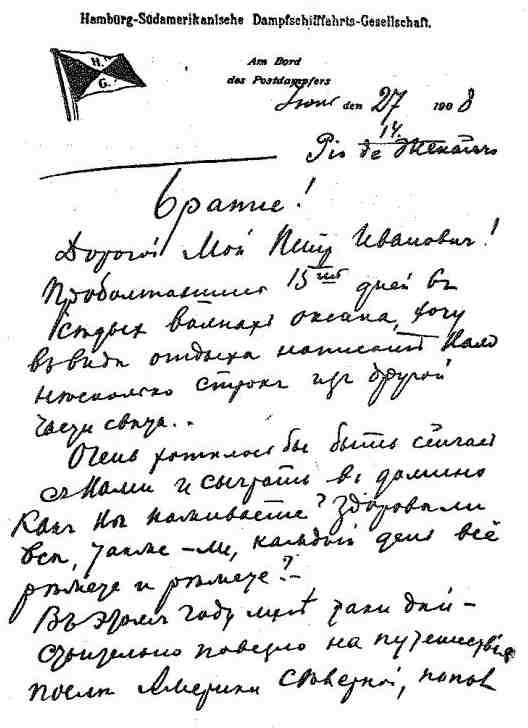 Hamburg-Südamerikanische Dampfschifffahrts-Gesellschaft.
H.
G.
Am Bord
des Postdampfers
den 27 1908
14.
Ріо де
братіе!
Дорогой Мой Петр Иванович!
Проболтавшись 15 дней въ
волнахъ океана, хочу
въ видѣ отдыха написать Вамъ
нѣсколько строкъ изъ другой
части свѣта..
Очень хотѣлось бы быть сейчас
съ Вами и сыграть въ домино
Какъ Вы поживаете? Здоровы ли
всѣ, также-ли, каждый день всё
рѣжете и рѣжете?-
Въ этомъ году мнѣ таки дѣй-
ствительно повезло на путешествія
послѣ Америки сѣверной, попов